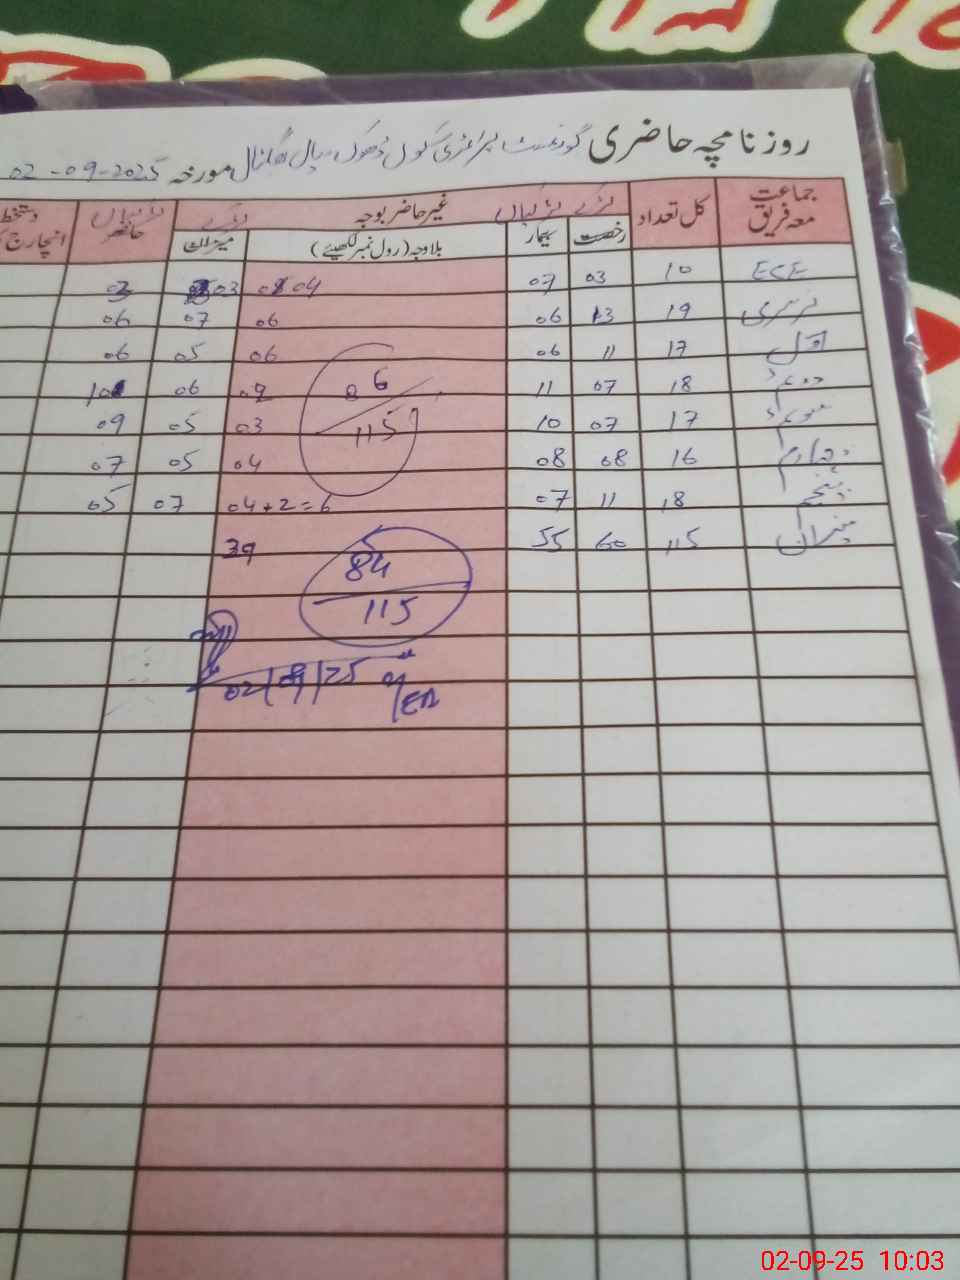 روزنامچہ حاضری گورنمنٹ پرائمری سکول ڈھوک مورخہ 02-09-2025
جماعت معہ فریق کل تعداد لڑکے لڑکیاں غیر حاضر بوجہ لڑکے لڑکیاں حاضر دستخط انچارج
رخصت بیمار بلاوجہ (رول نمبر لکھیئے) میزان
ECE 10 03 07 04 03 03
نرسری 19 13 06 06 07 06
اول 17 11 06 06 05 06
دوئم 18 07 11 02 06 10
سوئم 17 07 10 03 05 09
چہارم 16 08 08 04 05 07
پنجم 18 11 07 04+2=6 07 05
میزان 115 60 55 39
86
115
84
115
02/09/25
02-09-25 10:03